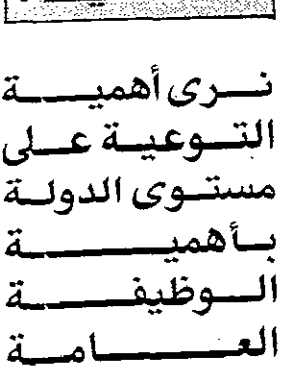 نرى أهمية
التوعية على
مستوى الدولة
بأهمية
الوظيفة
العامة